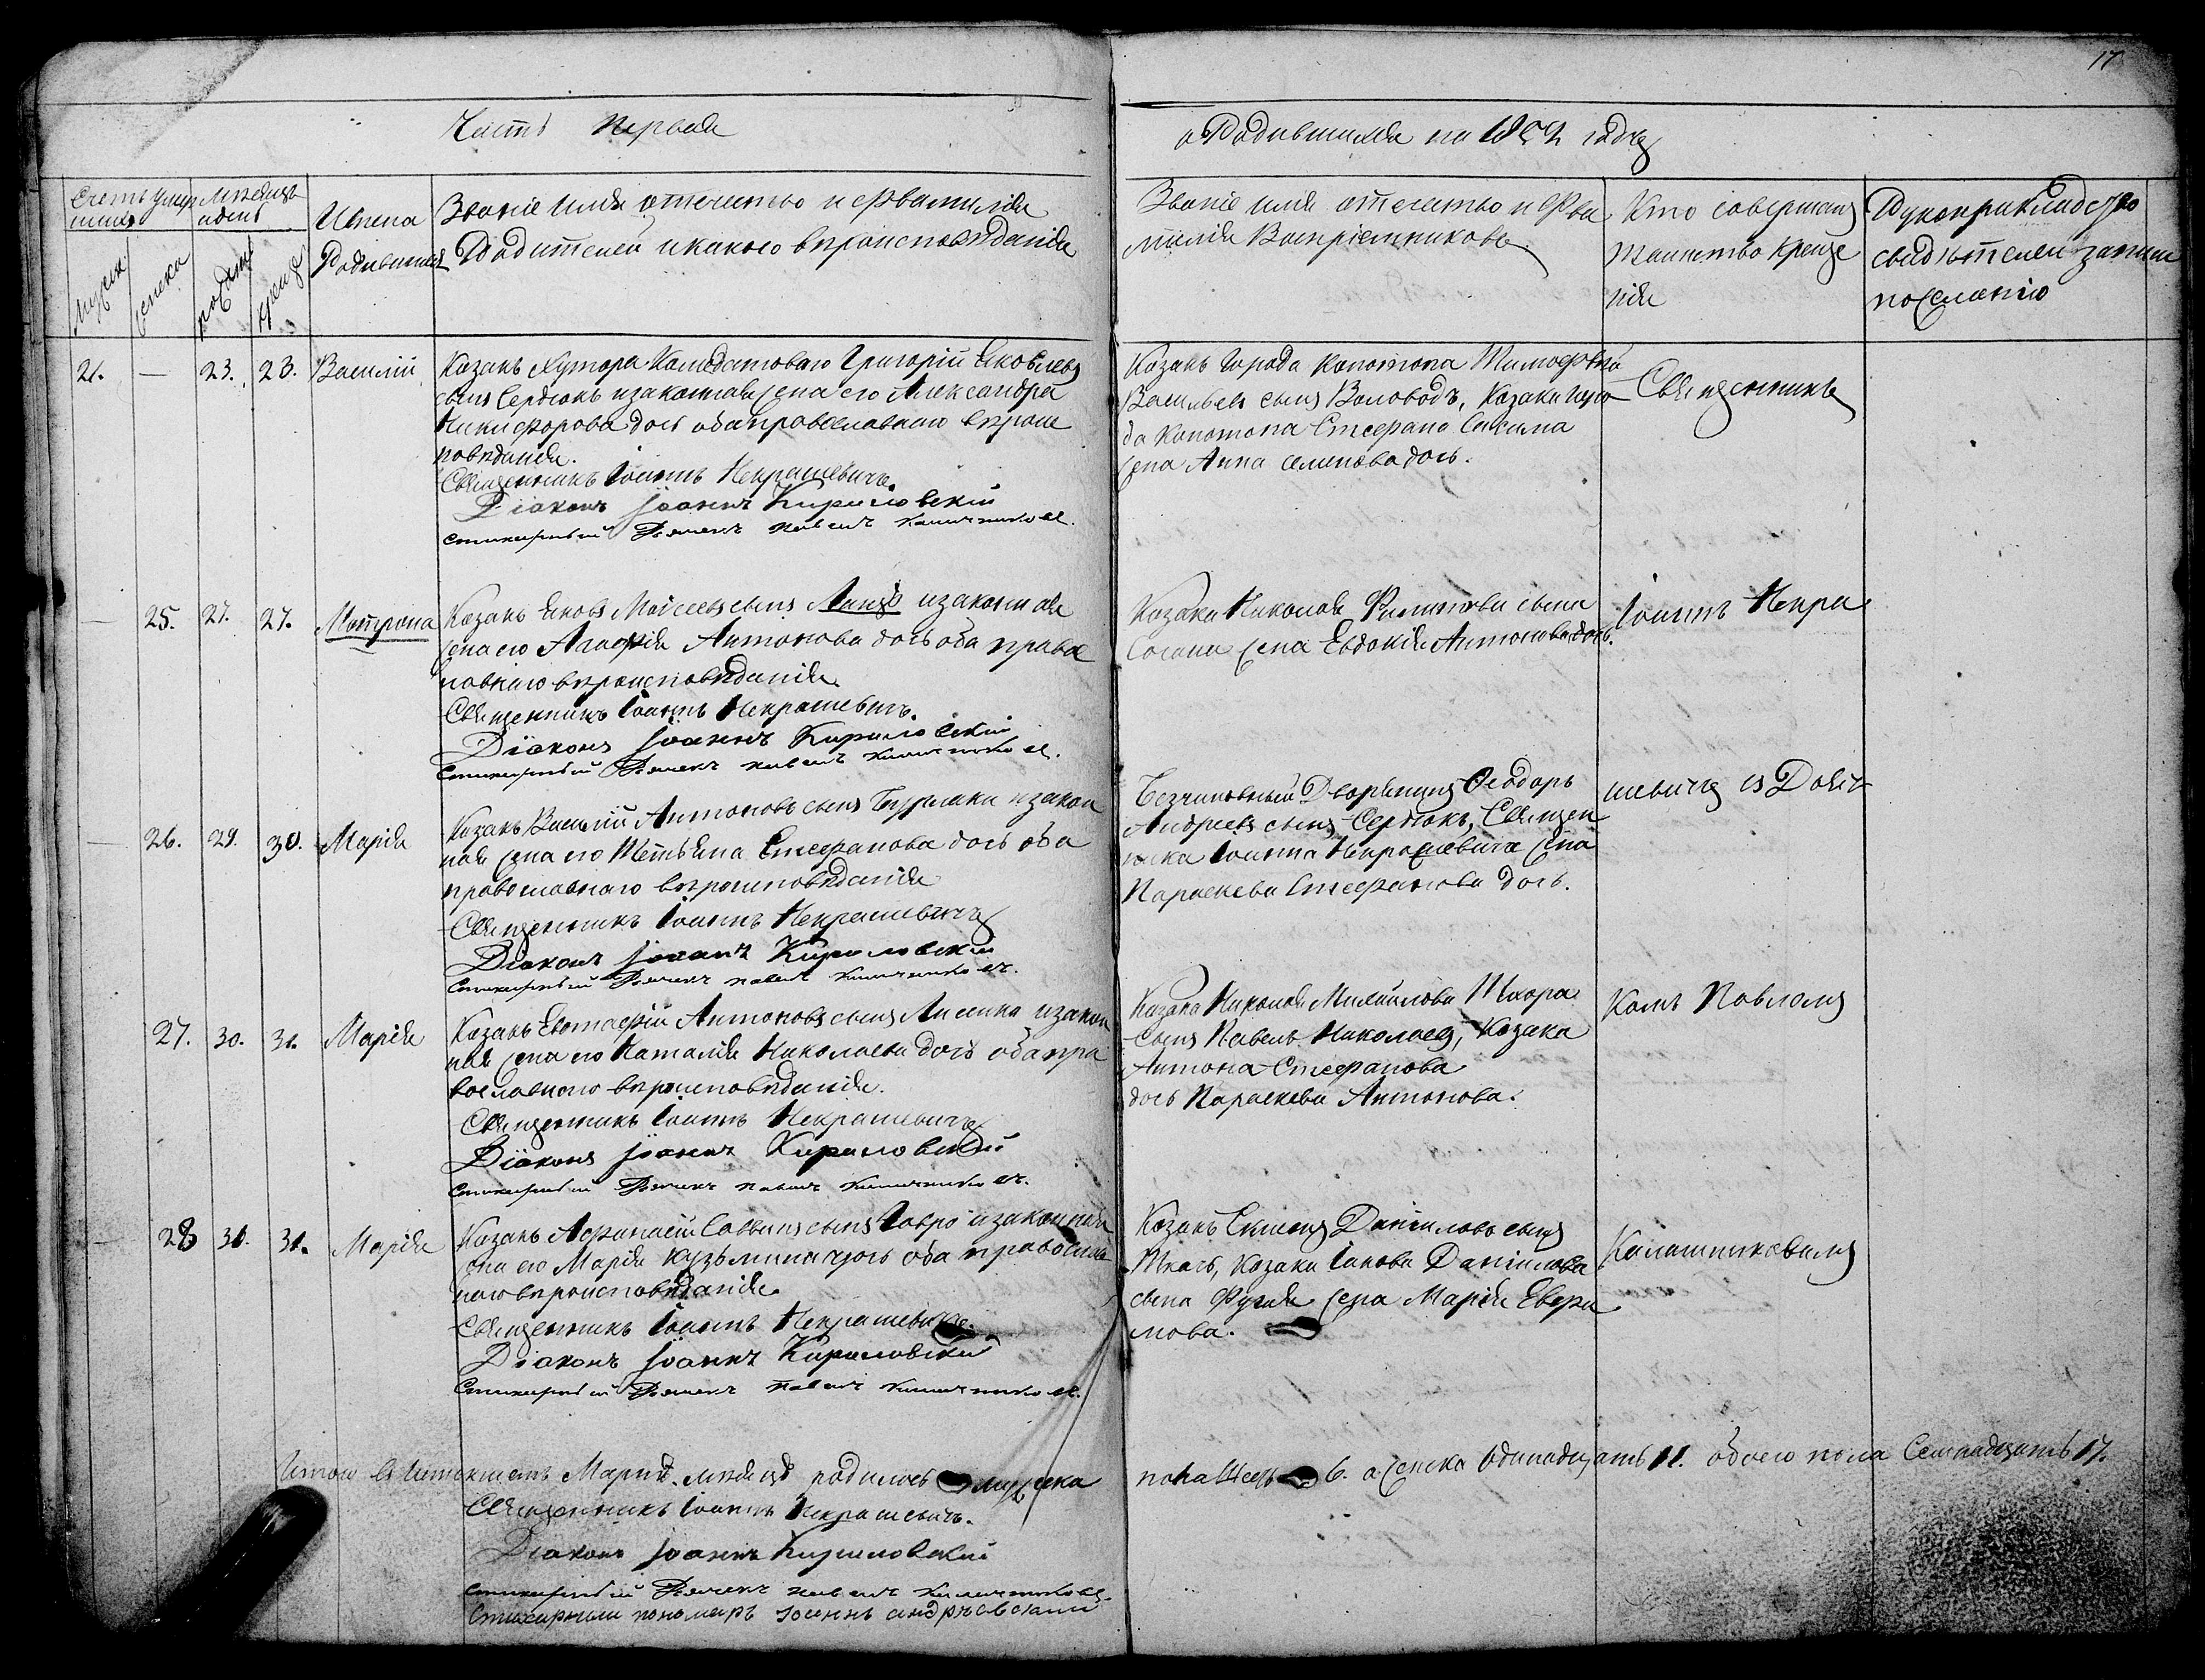 17
Часть Первая
о Родившихся на 1852 годъ
Счетъ умер
шихъ
Мѣсяцъ
и день
Мужск.
Женска
рожден
крещен
Имена
Родившихся
Званіе имя отечество и фамилія
Родителей и какого вѣроисповѣданія
Званіе имя отечество и Фа
милія Воспріемниковъ
Кто совершалъ
таинство креще
нія
Рукоприкладство
свидѣтелей записи
по желанію
21. — 23. 23. Василій
Козакъ Хутора Григорій Яковлевъ
сынъ Сердюкъ и законная жена его Александра
Никифорова дочь оба православнаго вѣроис
повѣданія.
Священникъ Іоаннъ Некрашевичъ.
Діаконъ Іоаннъ Кириловскій
Стихарный Дьячекъ Павелъ Калашниковъ.
Козакъ города Конотопа Тимофей
Васильевъ сынъ Воловодъ, Козака горо
да Конотопа Стефана
жена Анна Семенова дочь.
Священникъ
— 25. 27. 27. Мотрона
Козакъ Яковъ Моісеевъ сынъ и законная
жена его Агафія Антонова дочь оба правос
лавнаго вѣроисповѣданія
Священникъ Іоаннъ Некрашевичъ.
Діаконъ Іоаннъ Кириловскій
Стихарный Дьячекъ Павелъ Калашниковъ.
Козака Николая Филипова сына
жена Евдокія Антонова дочь.
Іоаннъ Некра
— 26. 29. 30. Марія
Козакъ Василій Антоновъ сынъ Бурлака и закон
ная жена его Тетьяна Стефанова дочь оба
православнаго вѣроисповѣданія
Священникъ Іоаннъ Некрашевичъ
Діаконъ Іоаннъ Кириловскій
Стихарный Дьячекъ Павелъ Калашниковъ.
Безчиновный Дворянинъ Ѳеодоръ
Андреевъ сынъ Сердюкъ, Священ
ника Іоанна Некрашевича жена
Параскева Стефанова дочь.
шевичъ съ Дьяч
— 27. 30. 31. Марія
Козакъ Евстафій Антоновъ сынъ и закон
ная жена его Наталія Николаева дочь оба пра
вославного вѣроисповѣданія.
Священникъ Іоаннъ Некрашевичъ
Діаконъ Іоаннъ Кириловскій
Стихарный Дьячекъ Павелъ Калашниковъ.
Козака Николая Михайлова
сынъ Павелъ Николаевъ, Козака
Антона Стефанова
дочь Параскева Антонова.
комъ Павломъ
— 28 31. 31. Марія
Козакъ Афанасій Саввинъ сынъ и законная
жена его Марія Кузьмина дочь оба православ
наго вѣроисповѣданія.
Священникъ Іоаннъ Некрашевичъ.
Діаконъ Іоаннъ Кириловскій
Стихарный Дьячекъ Павелъ Калашниковъ.
Козакъ Даніиловъ сынъ
Ткачъ, Козака Іакова Даніилова
сына жена Марія
мова.
Калашниковымъ
Итого въ Мартѣ мѣсяцѣ родилось мужеска
пола Шесть 6. а женска Одинадцать 11. обоего пола Семнадцать 17.
Священникъ Іоаннъ Некрашевичъ.
Діаконъ Іоаннъ Кириловскій
Стихарный Дьячекъ Павелъ Калашниковъ.
Стихарный пономарь